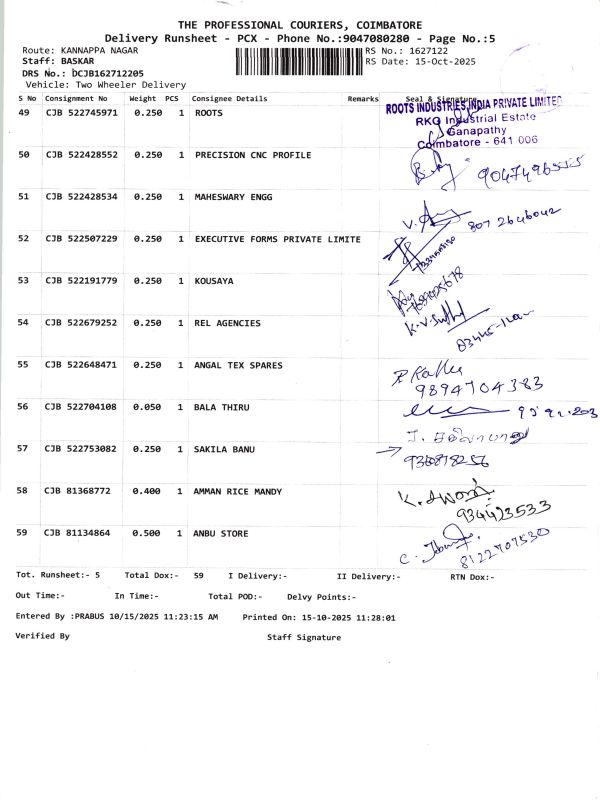 THE PROFESSIONAL COURIERS, COIMBATORE
Delivery Runsheet - PCX - Phone No.:9047080280 - Page No.:5
Route: KANNAPPA NAGAR RS No.: 1627122
Staff: BASKAR RS Date: 15-Oct-2025
DRS No.: DCJB162712205
Vehicle: Two Wheeler Delivery
S No Consignment No Weight PCS Consignee Details Remarks Seal & Signature
49 CJB 522745971 0.250 1 ROOTS
ROOTS INDUSTRIES INDIA PRIVATE LIMITED
RKG Industrial Estate
Ganapathy
Coimbatore - 641 006
50 CJB 522428552 0.250 1 PRECISION CNC PROFILE
9047496555
51 CJB 522428534 0.250 1 MAHESWARY ENGG
807 2646042
52 CJB 522507229 0.250 1 EXECUTIVE FORMS PRIVATE LIMITE
53 CJB 522191779 0.250 1 KOUSAYA
54 CJB 522679252 0.250 1 REL AGENCIES
55 CJB 522648471 0.250 1 ANGAL TEX SPARES
9894704383
56 CJB 522704108 0.050 1 BALA THIRU
57 CJB 522753082 0.250 1 SAKILA BANU
58 CJB 81368772 0.400 1 AMMAN RICE MANDY
934423533
59 CJB 81134864 0.500 1 ANBU STORE
8122707530
Tot. Runsheet:- 5 Total Dox:- 59 I Delivery:- II Delivery:- RTN Dox:-
Out Time:- In Time:- Total POD:- Delvy Points:-
Entered By :PRABUS 10/15/2025 11:23:15 AM Printed On: 15-10-2025 11:28:01
Verified By Staff Signature